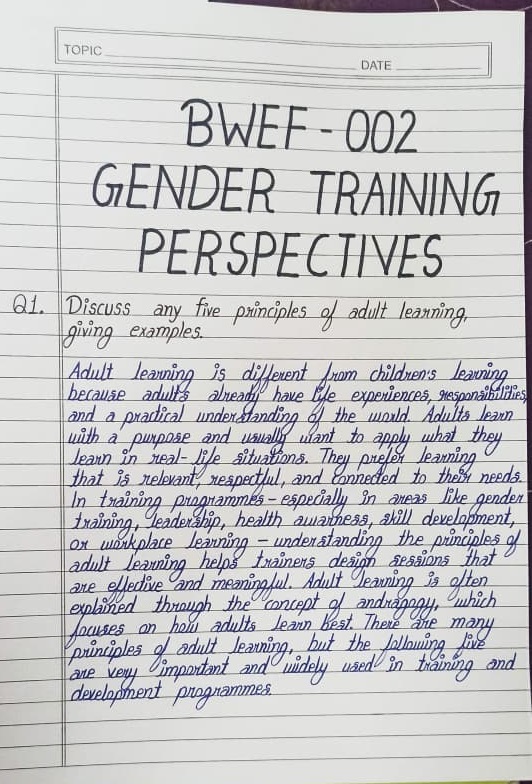 TOPIC
DATE
BWEF-002
GENDER TRAINING
PERSPECTIVES
Q1. Discuss any five principles of adult learning,
giving examples.
Adult learning is different from children's learning
because adults already have life experiences, responsibilities,
and a practical understanding of the world. Adults learn
with a purpose and usually want to apply what they
learn in real-life situations. They prefer learning
that is relevant, respectful, and connected to their needs.
In training programmes - especially in areas like gender
training, leadership, health awareness, skill development,
or workplace learning - understanding the principles of
adult learning helps trainers design sessions that
are effective and meaningful. Adult learning is often
explained through the concept of andragogy, which
focuses on how adults learn best. There are many
principles of adult learning, but the following five
are very important and widely used in training and
development programmes.